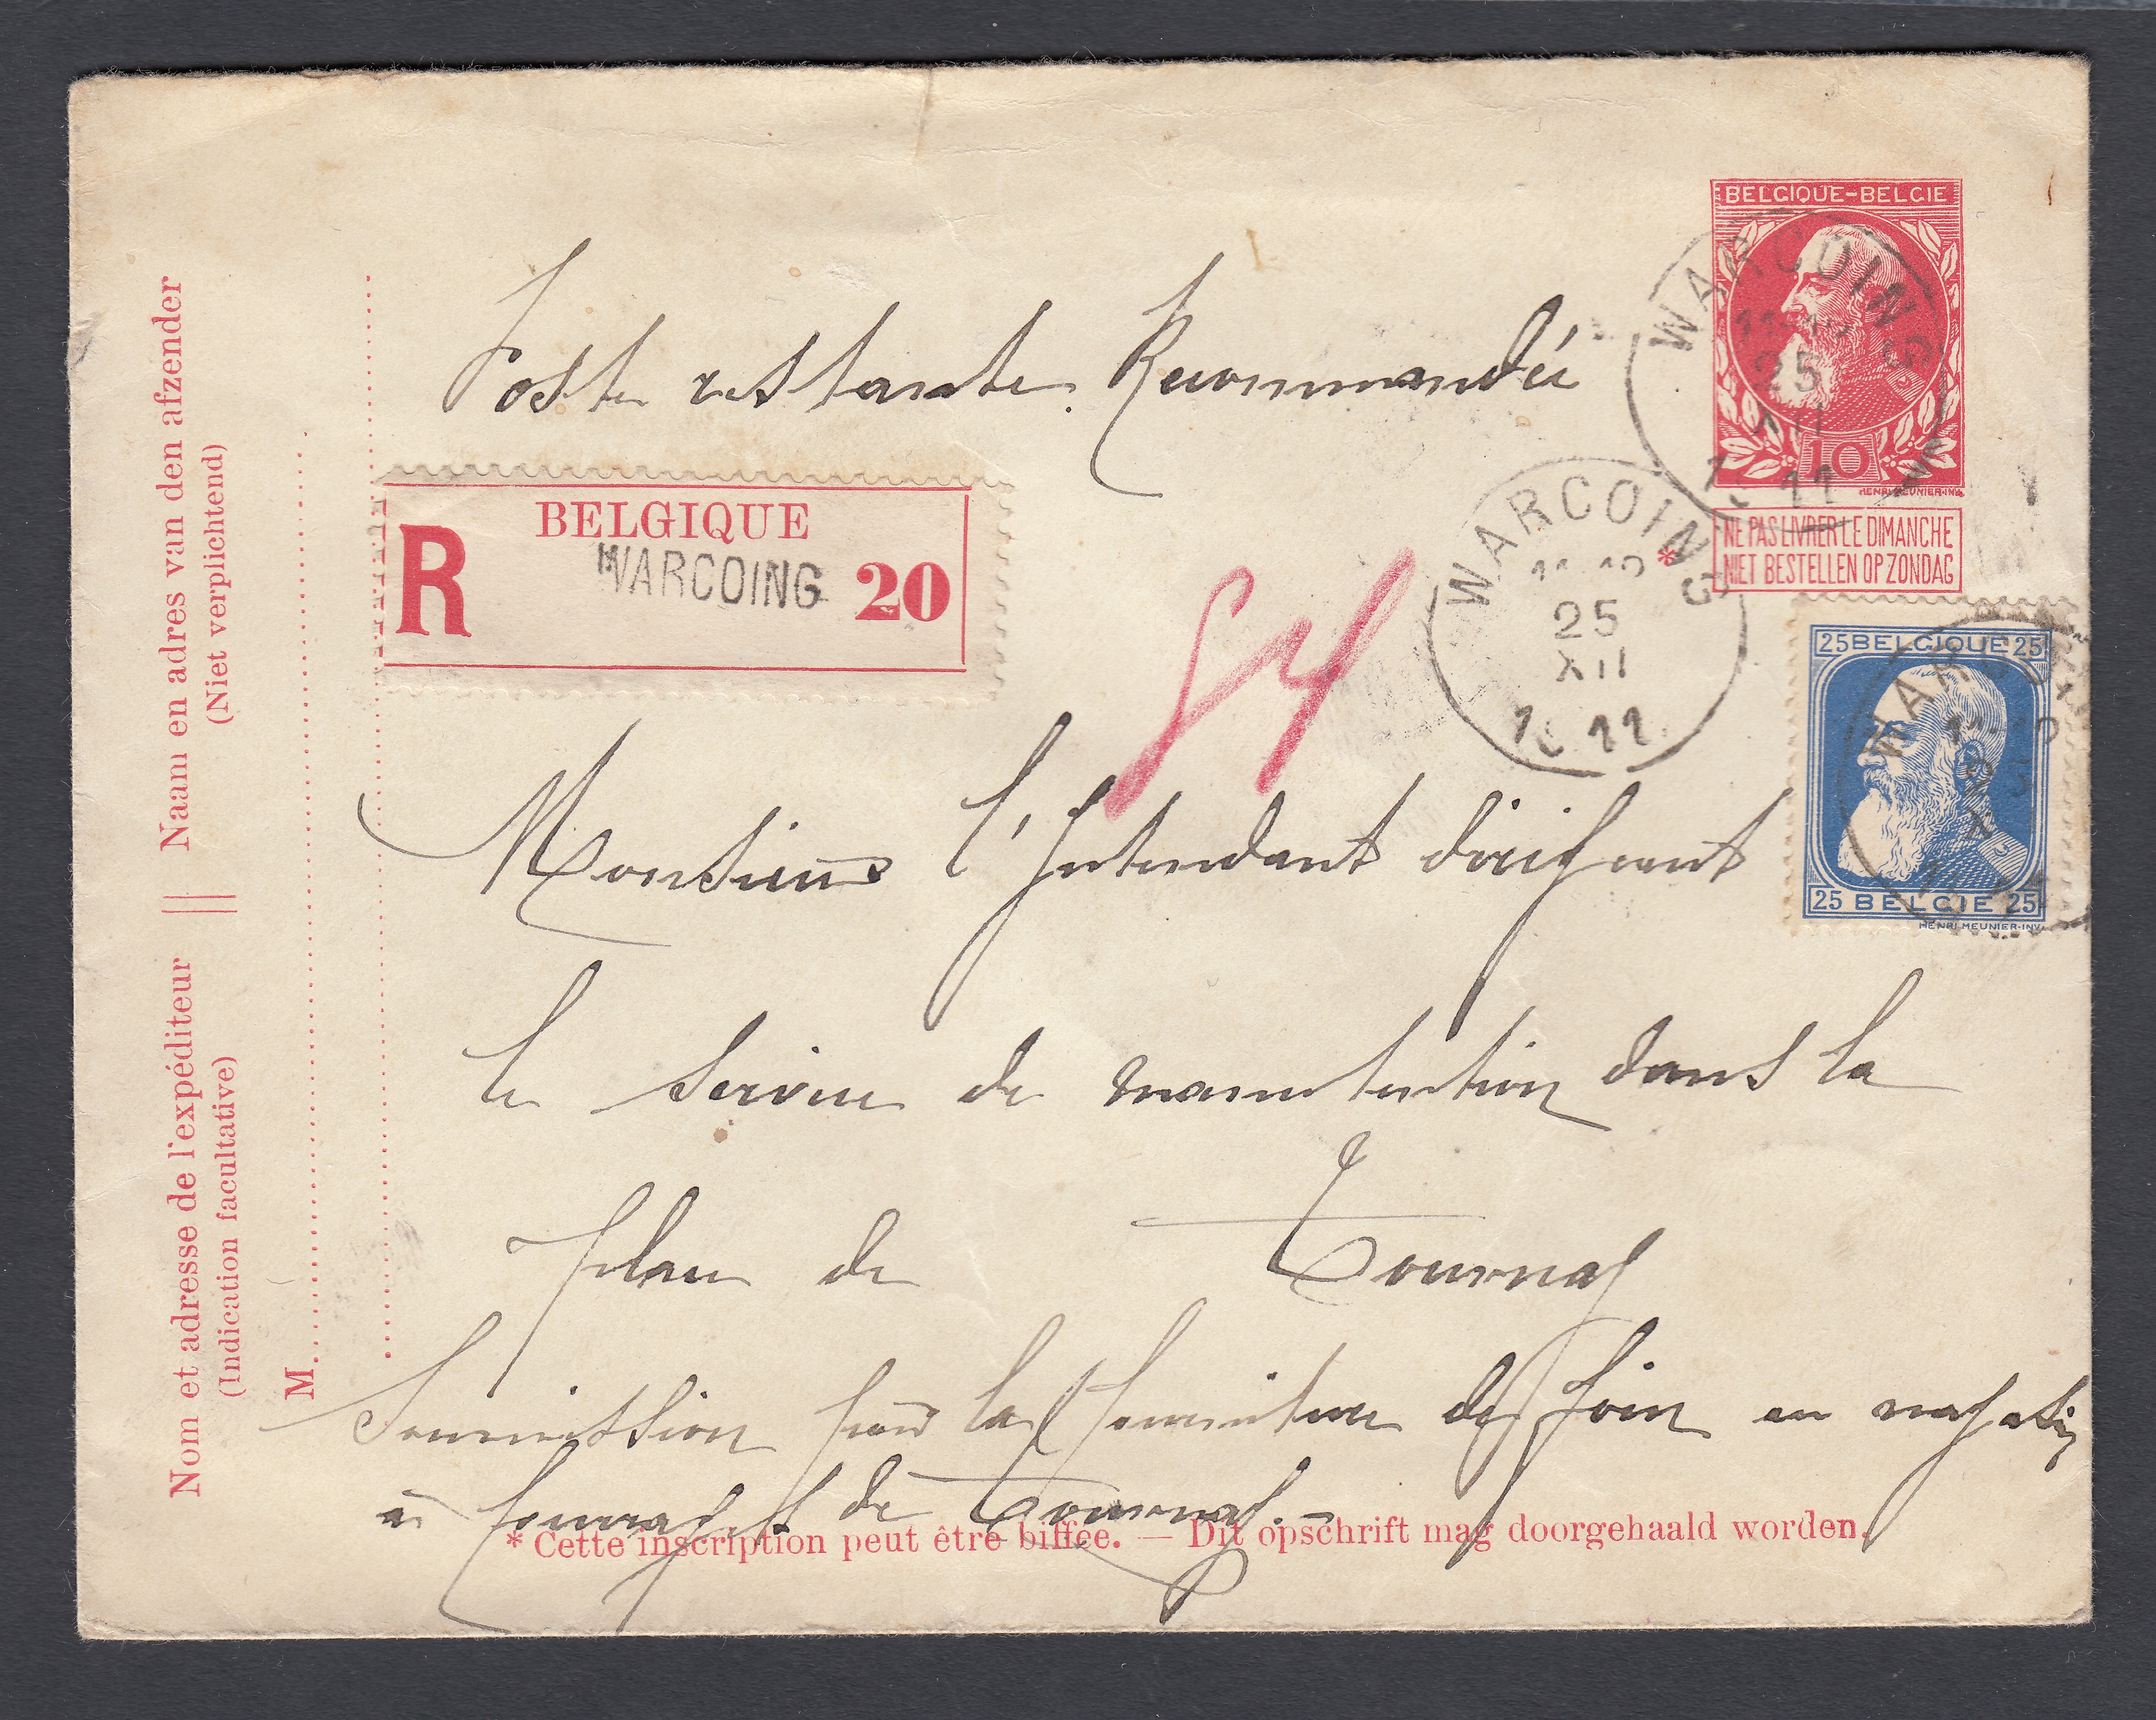 BELGIQUE-BELGIE
10
HENRI MEUNIER·INV.
NE PAS LIVRER LE DIMANCHE
NIET BESTELLEN OP ZONDAG
*
WARCOING
25
XII
11
WARCOING
25
XII
11
Poste restante. Recommandée
BELGIQUE
R WARCOING 20
54
25 BELGIQUE 25
25 BELGIE 25
HENRI MEUNIER·INV.
Monsieur l'Intendant dirigeant
le service de manutention dans la
place de Tournay
Soumission pour la fourniture de foin en magasin
à fourrages de Tournay.-
* Cette inscription peut être biffée. — Dit opschrift mag doorgehaald worden.
Nom et adresse de l'expéditeur || Naam en adres van den afzender
(Indication facultative) (Niet verplichtend)
M